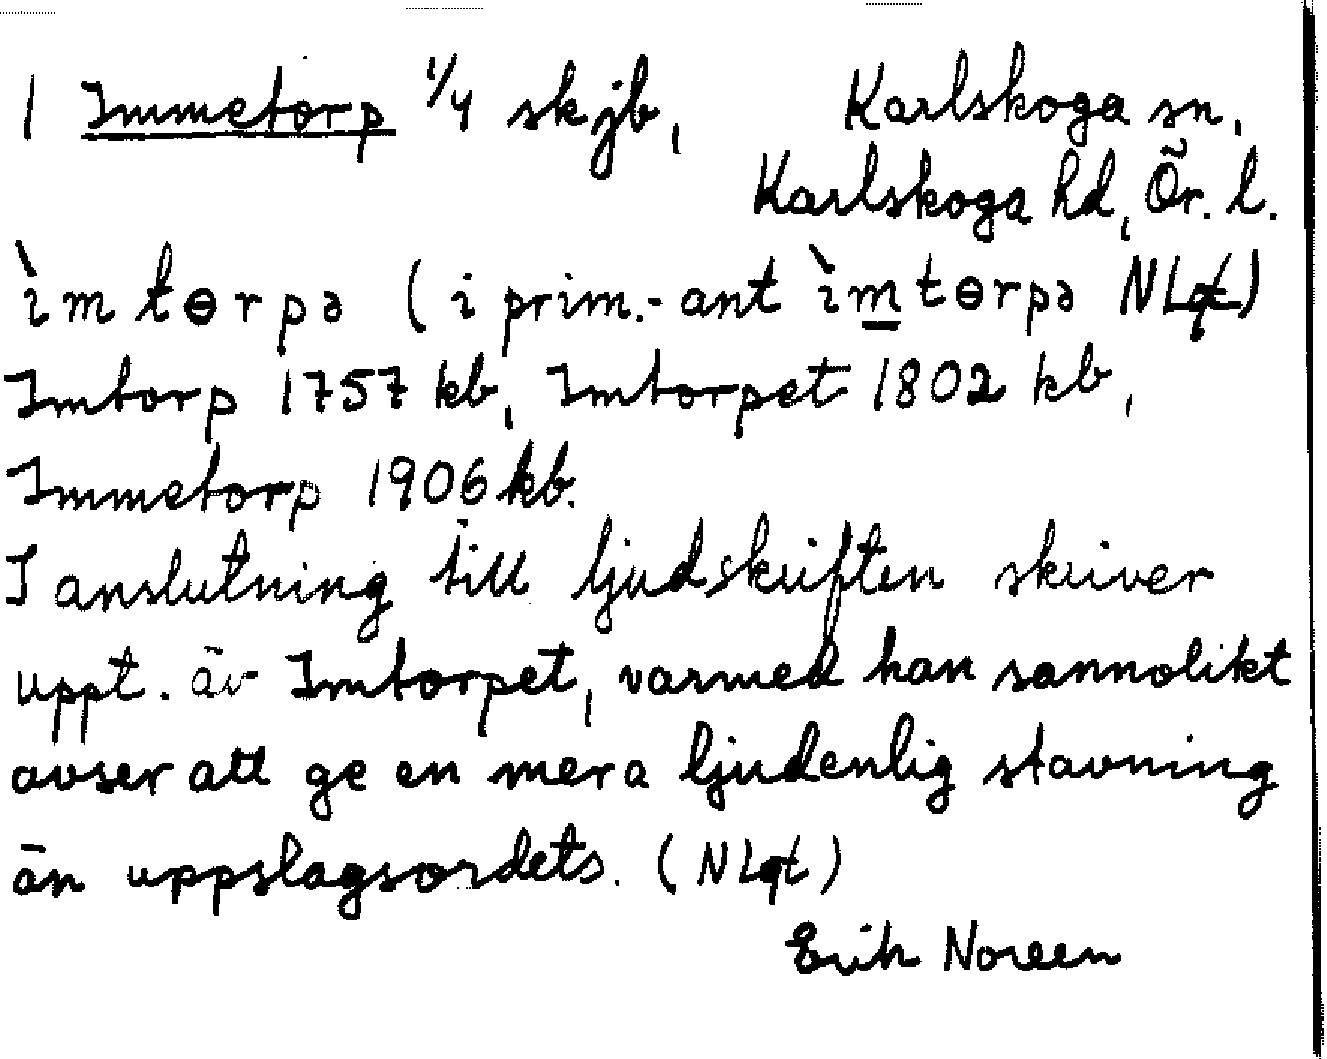 1 Immetorp 1/4 skjb, Karlskoga sn,
Karlskoga hd, Ör. l.
ìmtɵrpə (i prim.-ant ìmtɵrpə NLgt)
Imtorp 1757 kb, Imtorpet 1802 kb,
Immetorp 1906 kb.
I anslutning till ljudskriften skriver
uppt. äv Imtorpet, varmed han sannolikt
avser att ge en mera ljudenlig stavning
än uppslagsordets. (NLgt)
Erik Noreen